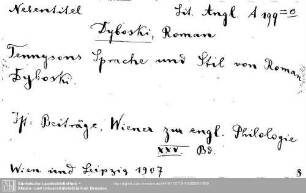 Nebentitel Lit. Angl. A 199=e
Dyboski, Roman
Tennysons Sprache und Stil von Roman
Dyboski.
Jn: Beiträge, Wiener zur engl. Philologie
XXV. Bd.
Wien und Leipzig 1907
8
Sächsische Landesbibliothek -
Staats- und Universitätsbibliothek Dresden